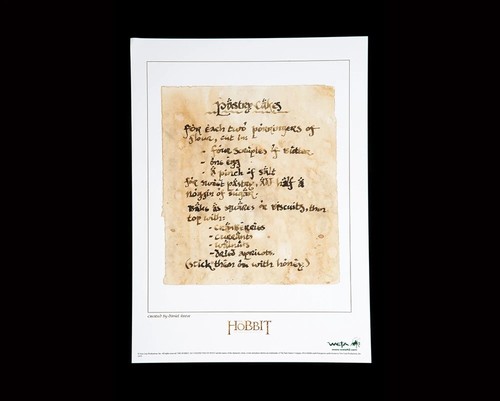 Pastry Cakes
for each two porringers of
flour, cut in
- four scruples of butter
- one egg
- a pinch of salt
for sweet pastry, add half a
noggin of sugar.
Bake as squares or biscuits, then
top with:
- cranberries
- currants
- walnuts
- dried apricots.
(stick them on with honey.)
created by Daniel Reeve
THE HOBBIT
WETA